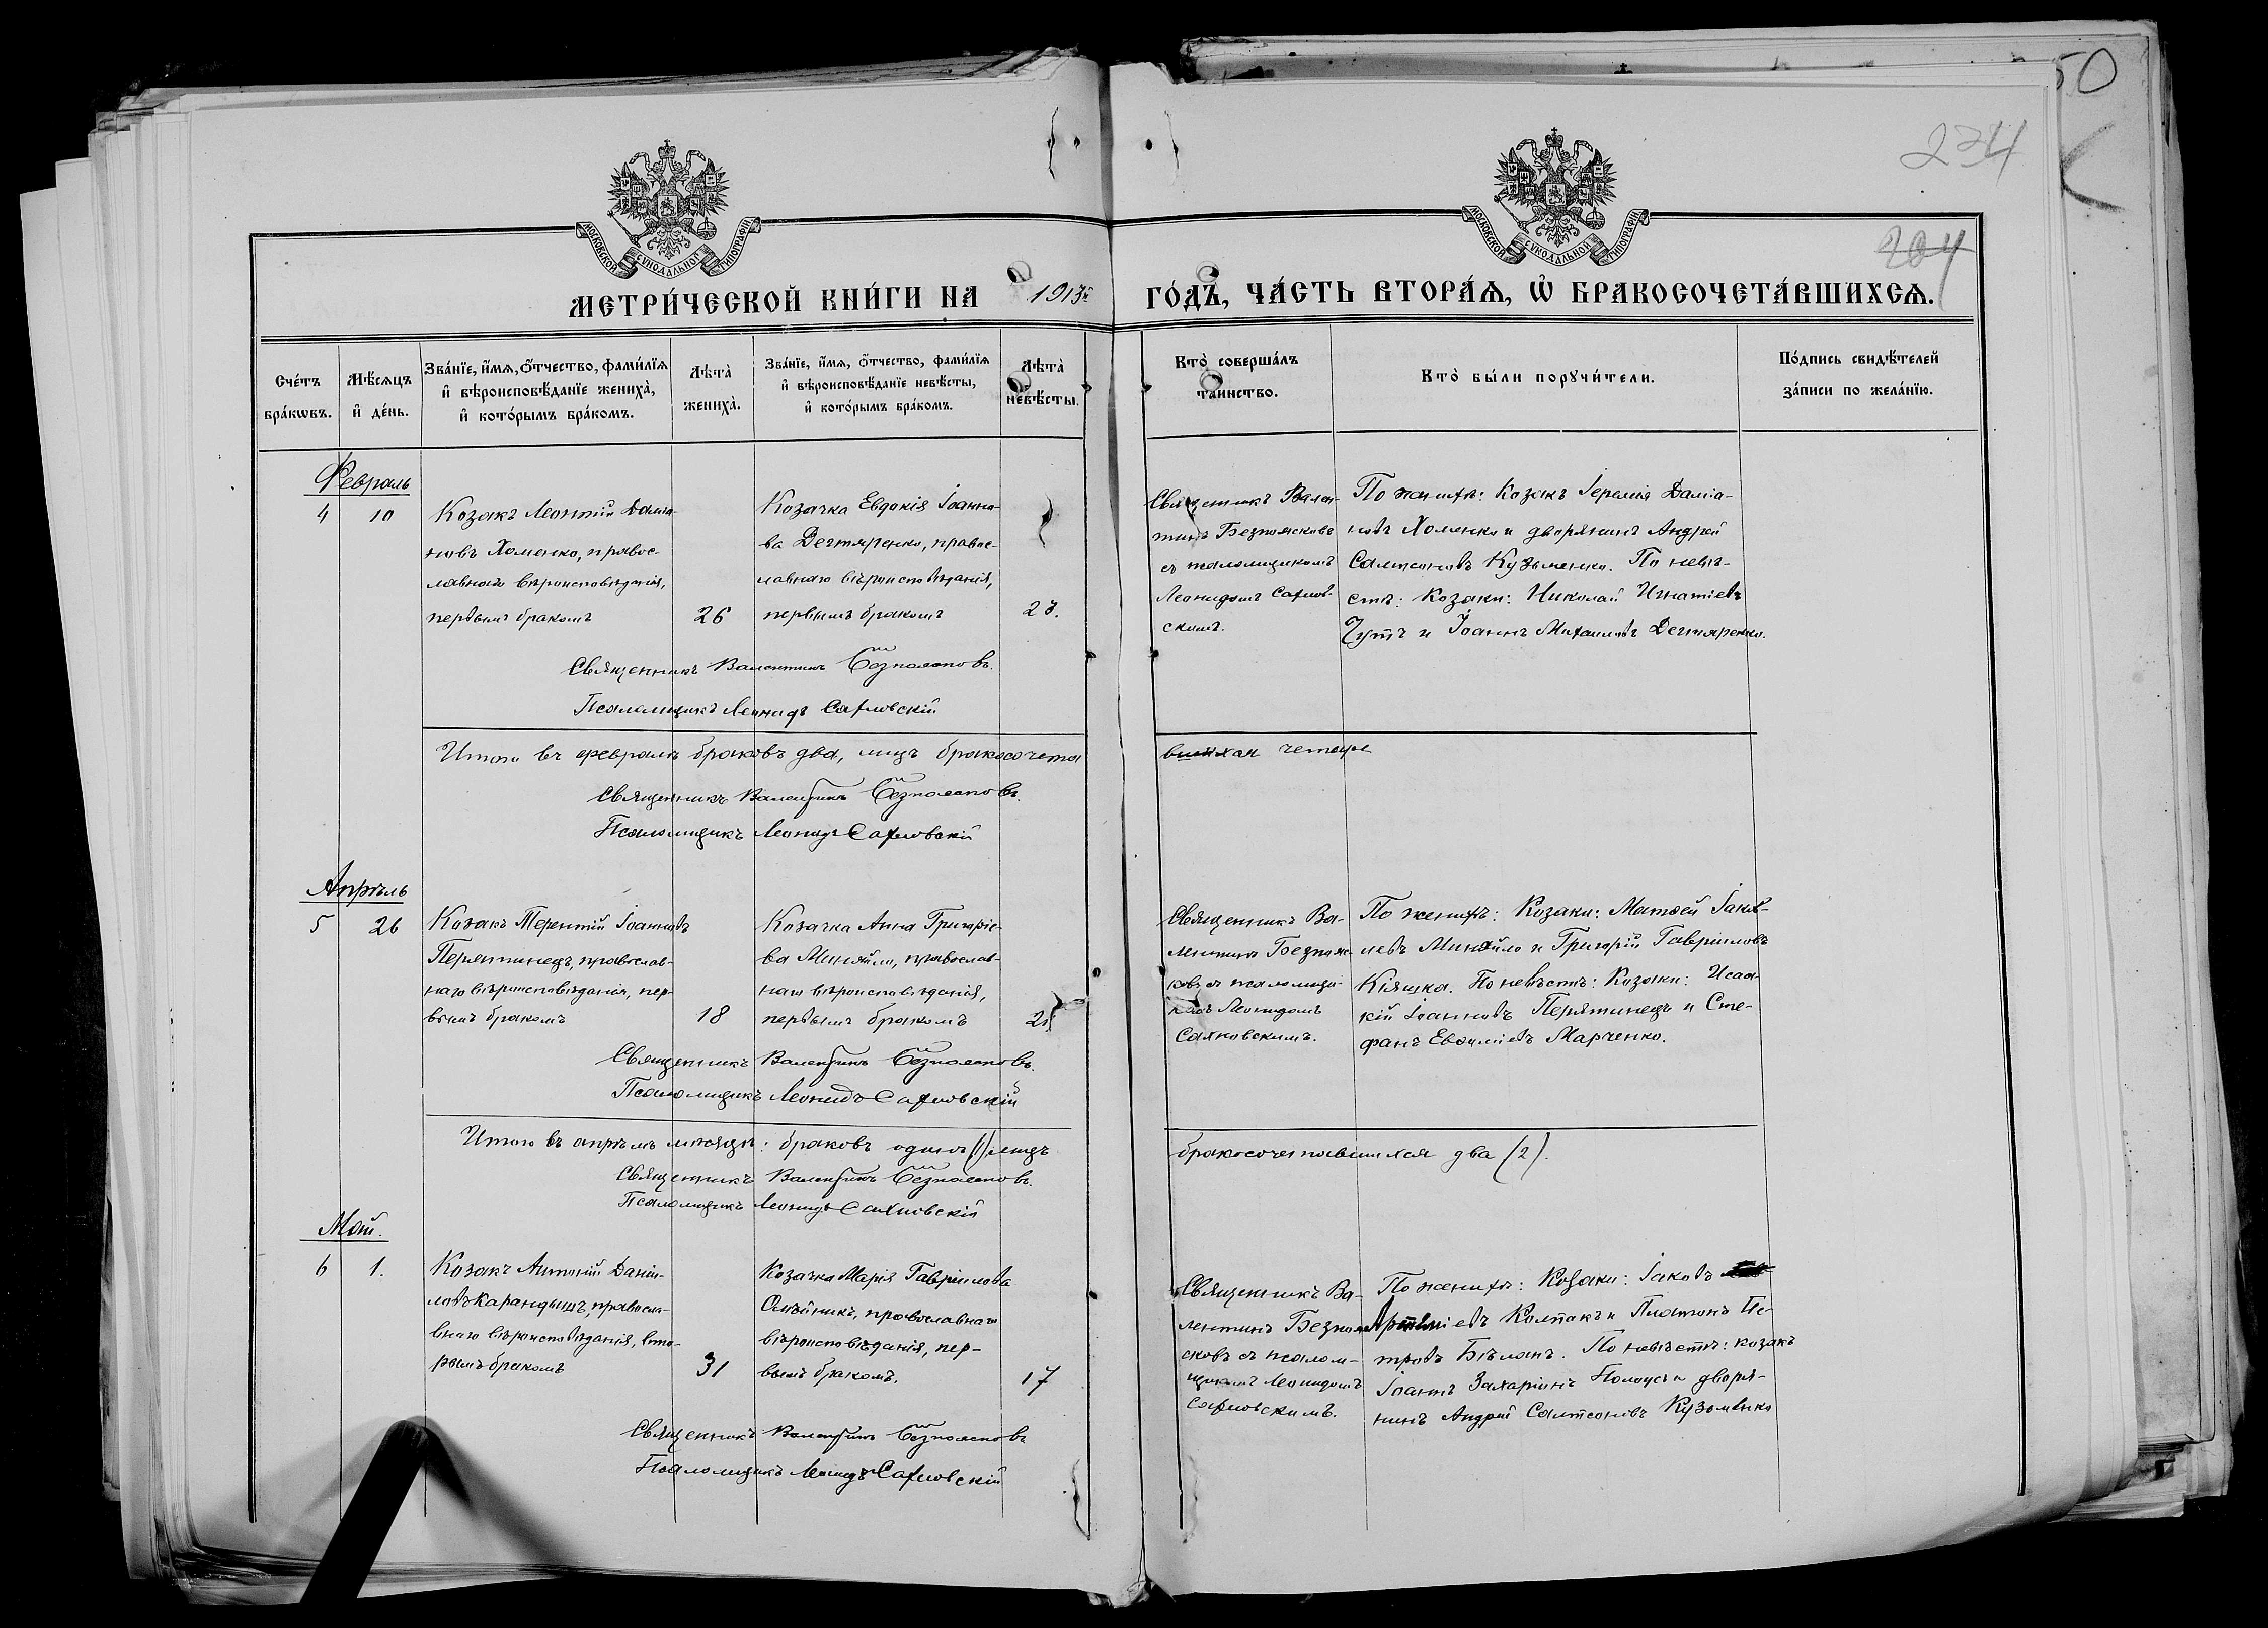 50
234
204
МОСКОВСКОЙ СѴНОДАЛЬНОЙ ТИПОГРАФІИ
МОСКОВСКОЙ СѴНОДАЛЬНОЙ ТИПОГРАФІИ
МЕТРИ́ЧЕСКОЙ КНИ́ГИ НА 1913й ГО́ДЪ, ЧА́СТЬ ВТОРА́Ѧ, Ѽ БРАКОСОЧЕТА́ВШИХСѦ.
Сче́тъ бра́кѡвъ.
Мѣ́сяцъ и҆ де́нь.
Зва́нїе, и҆́мя, ѻ҆́тчество, фами́лїя и҆ вѣроисповѣ́данїе жениха̀, и҆ кото́рымъ бра́комъ.
Лѣта̀ жениха̀.
Зва́нїе, и҆́мя, ѻ҆́тчество, фами́лїя и҆ вѣроисповѣ́данїе невѣ́сты, и҆ кото́рымъ бра́комъ.
Лѣта̀ невѣ́сты.
Кто̀ соверша́лъ та́инство.
Кто̀ бы́ли порꙋчи́тели.
По́дпись свидѣ́телей за́писи по жела́нїю.
Февраль
4 10
Козакъ Леонтій Даміа-
новъ Хоменко, правос-
лавнаго вѣроисповѣданія,
первымъ бракомъ
26
Козачка Евдокія Іоанно-
ва Дегтяренко, правос-
лавнаго вѣроисповѣданія,
первымъ бракомъ
23.
Священникъ Вален-
тинъ Безпоясковъ
съ псаломщикомъ
Леонидомъ Сахнов-
скимъ.
По женихѣ: Козакъ Іеремія Даміа-
новъ Хоменко и дворянинъ Андрей
Сампсоновъ Кузьменко. По невѣ-
стѣ: Козаки: Николай Игнатіевъ
Гутъ и Іоаннъ Михаиловъ Дегтяренко.
Священникъ Валентинъ Безпоясковъ.
Псаломщикъ Леонидъ Сахновскій
Итого въ февралѣ браковъ два, лицъ бракосочета
вшихся четыре
Священникъ Валентинъ Безпоясковъ.
Псаломщикъ Леонидъ Сахновскій
Апрѣль
5 26
Козакъ Терентій Іоанновъ
Перятинецъ, православ-
наго вѣроисповѣданія, пер-
вымъ бракомъ
18
Козачка Анна Григоріе-
ва Миняйло, православ-
наго вѣроисповѣданія,
первымъ бракомъ
Священникъ Ва-
лентинъ Безпояс-
ковъ съ псаломщи-
комъ Леонидомъ
Сахновскимъ.
По женихѣ: Козаки: Матѳей Іаков-
левъ Миняйло и Григорій Гавріиловъ
Кіяшка. По невѣстѣ: Козаки: Исаа-
кій Іоанновъ Перятинецъ и Сте-
фанъ Евѳиміевъ Марченко.
Священникъ Валентинъ Безпоясковъ.
Псаломщикъ Леонидъ Сахновскій
Итого въ апрѣлѣ мѣсяцѣ: браковъ одинъ (1) лицъ
бракосочетавшихся два (2).
Священникъ Валентинъ Безпоясковъ.
Псаломщикъ Леонидъ Сахновскій
Май.
6 1.
Козакъ Антоній Даніи-
ловъ Карандышъ, правосла-
внаго вѣроисповѣданія, вто-
рымъ бракомъ
31
Козачка Марія Гавріилова
Олѣйникъ, православнаго
вѣроисповѣданія, пер-
вымъ бракомъ.
17
Священникъ Ва-
лентинъ Безпоя-
сковъ съ псалом-
щикомъ Леонидомъ
Сахновскимъ.
По женихѣ: Козаки: Іаковъ
Артеміевъ Колпакъ и Платонъ Пе-
тровъ Бѣланъ. По невѣстѣ: козакъ
Іоаннъ Захаріинъ и дворя-
нинъ Андрей Сампсоновъ Кузьменко
Священникъ Валентинъ Безпоясковъ
Псаломщикъ Леонидъ Сахновскій